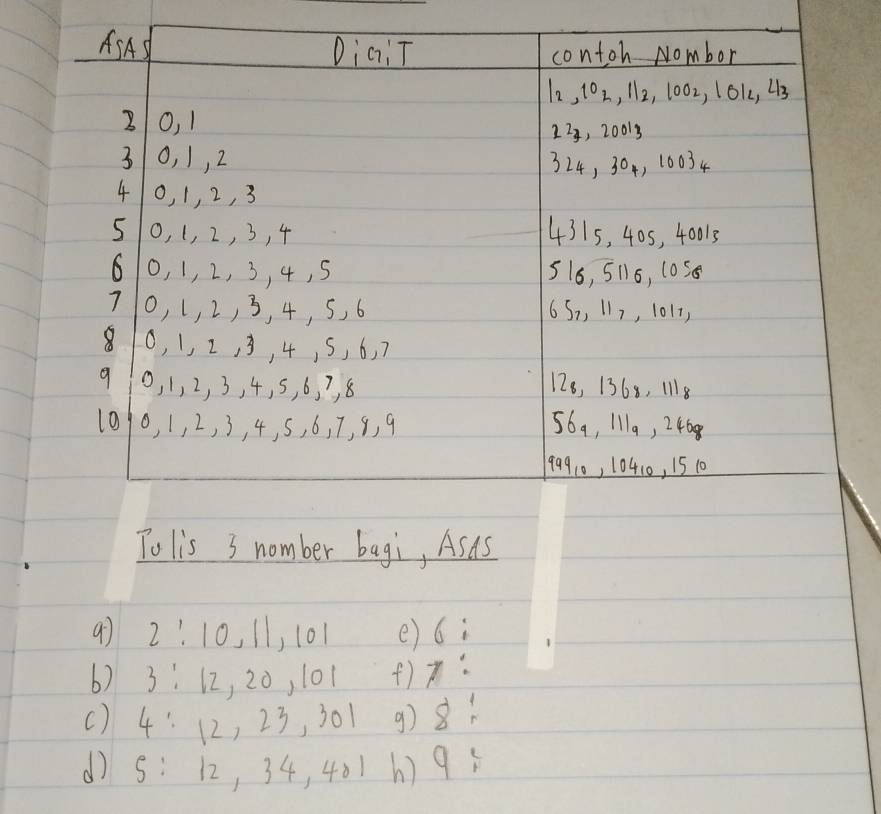 ASAS DigiT contoh Nombor
1₂, 10₂, 11₂, 100₂, 101₂, 21₃
2 0, 1
22₃, 2001₃
3 0, 1, 2
32₄, 30₄, 1003₄
4 0, 1, 2, 3
5 0, 1, 2, 3, 4 431₅, 40₅, 4001₅
6 0, 1, 2, 3, 4, 5 51₆, 511₆, 105₆
7 0, 1, 2, 3, 4, 5, 6 65₇, 11₇, 101₇,
8 0, 1, 2, 3, 4, 5, 6, 7
9 0, 1, 2, 3, 4, 5, 6, 7, 8 12₈, 136₈, 111₈
10 0, 1, 2, 3, 4, 5, 6, 7, 8, 9 56₉, 111₉,
999₁₀, 104₁₀, 15₁₀
Tulis 3 nomber bagi, ASAS
a) 2: 10, 11, 101 e) 6:
b) 3: 12, 20, 101 f) 7:
c) 4: 12, 23, 301 g) 8:
d) 5: 12, 34, 401 h) 9: